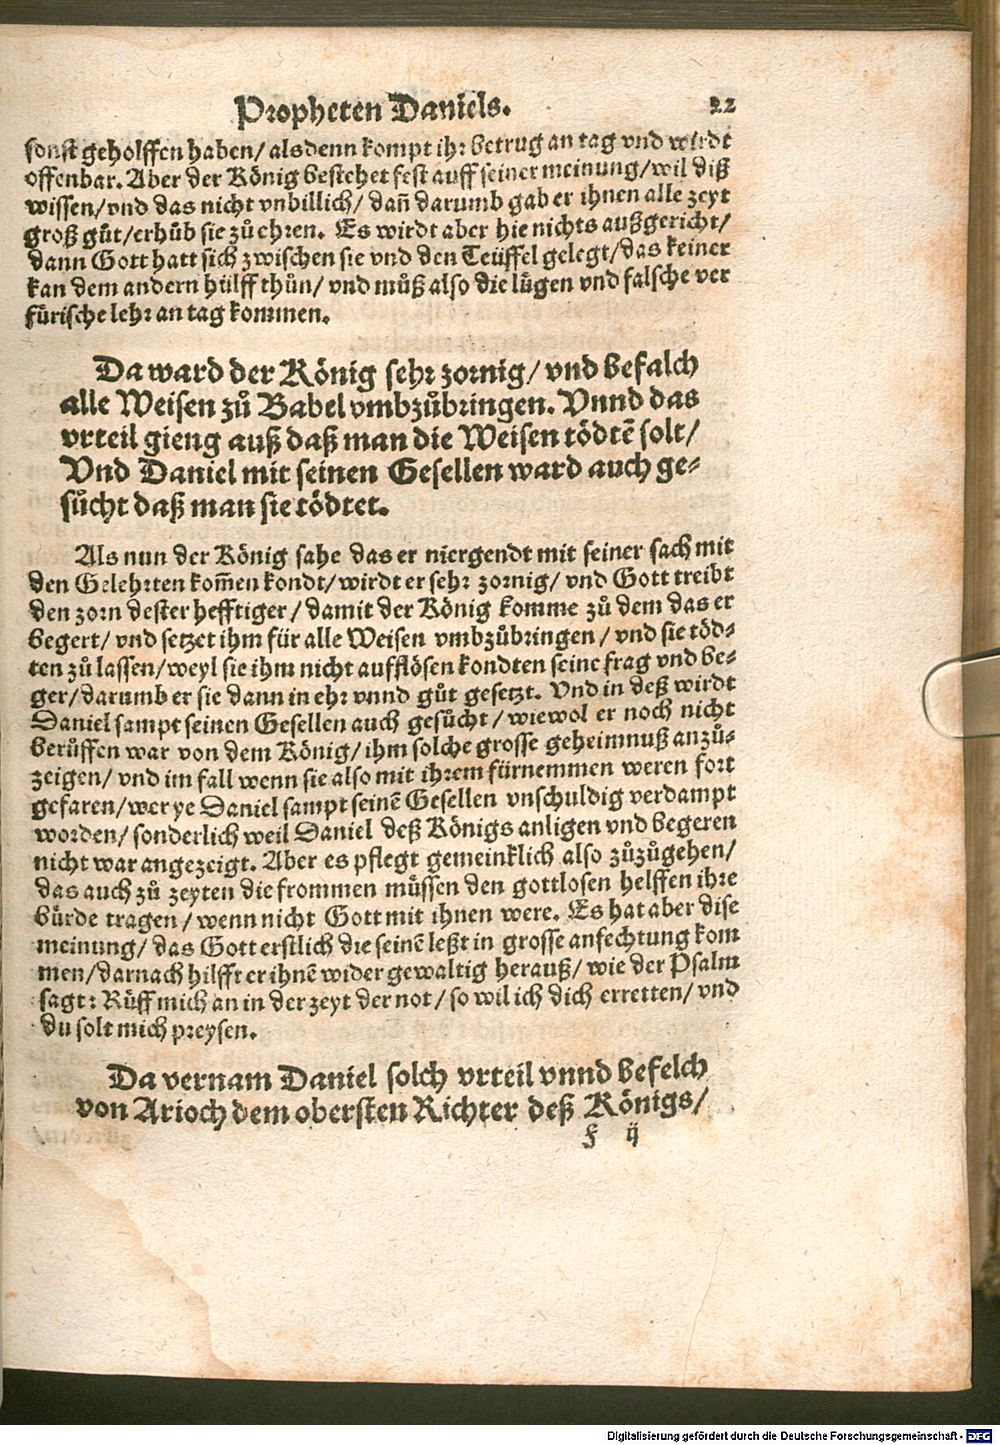 Propheten Daniels. 22
sonst geholffen haben/ alsdenn kompt ihr betrug an tag vnd wirdt
offenbar. Aber der König bestehet fest auff seiner meinung/ wil diß
wissen/ vnd das nicht vnbillich/ dañ darumb gab er ihnen alle zeyt
groß gůt/ erhůb sie zů ehren. Es wirdt aber hie nichts außgericht/
dann Gott hatt sich zwischen sie vnd den Teüffel gelegt/ das keiner
kan dem andern hülff thůn/ vnd můß also die lügen vnd falsche ver
fürische lehr an tag kommen.
Da ward der König sehr zornig/ vnd befalch
alle Weisen zů Babel vmbzůbringen. Vnnd das
vrteil gieng auß daß man die Weisen tödtē solt/
Vnd Daniel mit seinen Gesellen ward auch ge⸗
sůcht daß man sie tödtet.
Als nun der König sahe das er niergendt mit seiner sach mit
den Gelehrten kom̄en kondt/ wirdt er sehr zornig/ vnd Gott treibt
den zorn dester hefftiger/ damit der König komme zů dem das er
begert/ vnd setzet ihm für alle Weisen vmbzůbringen/ vnd sie töd⸗
ten zů lassen/ weyl sie ihm nicht aufflösen kondten seine frag vnd be⸗
ger/ darumb er sie dann in ehr vnnd gůt gesetzt. Vnd in deß wirdt
Daniel sampt seinen Gesellen auch gesůcht/ wiewol er noch nicht
berůffen war von dem König/ ihm solche grosse geheimnuß anzů⸗
zeigen/ vnd im fall wenn sie also mit ihrem fürnemmen weren fort
gefaren/ wer ye Daniel sampt seinē Gesellen vnschuldig verdampt
worden/ sonderlich weil Daniel deß Königs anligen vnd begeren
nicht war angezeigt. Aber es pflegt gemeinklich also zůzůgehen/
das auch zů zeyten die frommen müssen den gottlosen helffen ihre
bürde tragen/ wenn nicht Gott mit ihnen were. Es hat aber dise
meinung/ das Gott erstlich die seinē leßt in grosse anfechtung kom
men/ darnach hilfft er ihnē wider gewaltig herauß/ wie der Psalm
sagt: Růff mich an in der zeyt der not/ so wil ich dich erretten/ vnd
du solt mich preysen.
Da vernam Daniel solch vrteil vnnd befelch
von Arioch dem obersten Richter deß Königs/
F ij
Digitalisierung gefördert durch die Deutsche Forschungsgemeinschaft - DFG